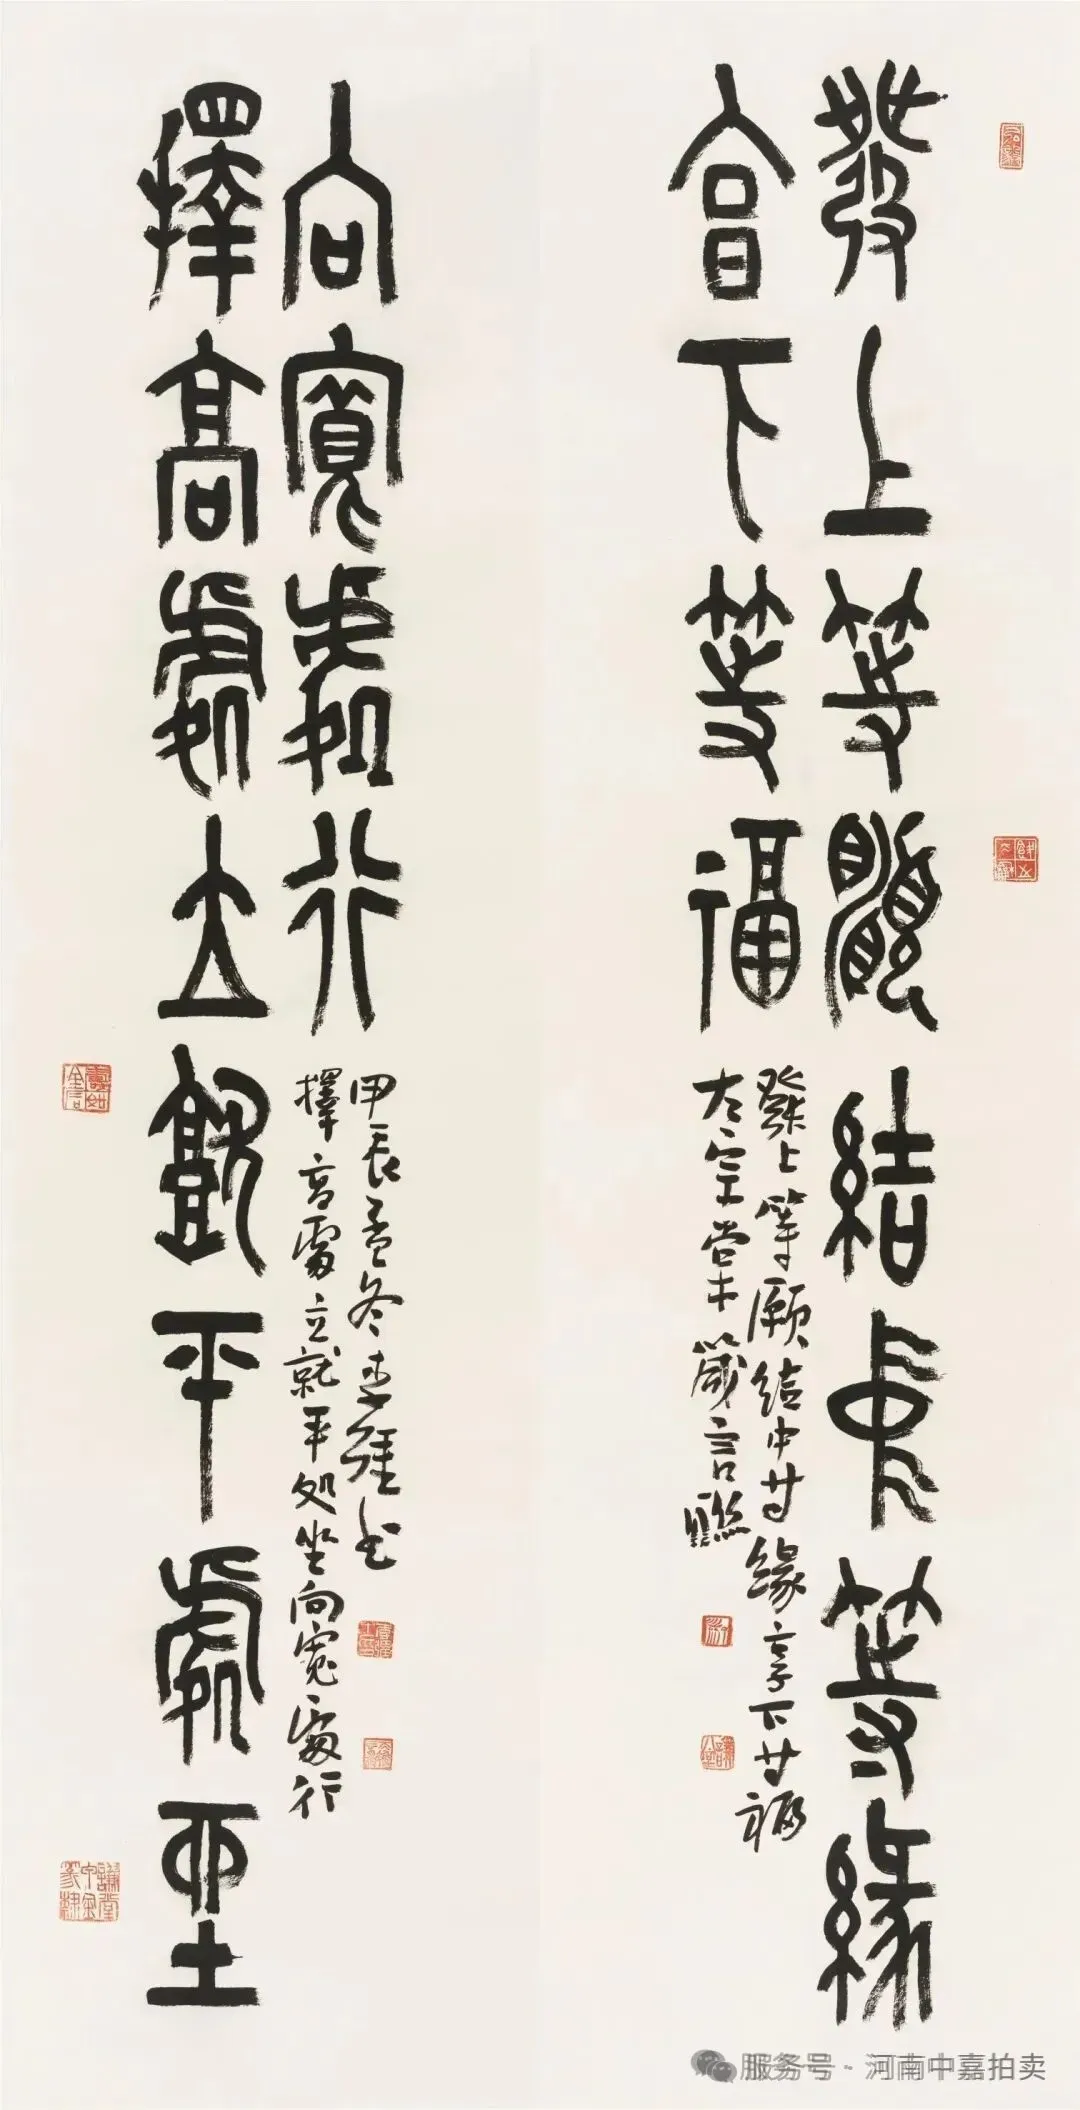 發上等願結中等緣
享下等福
發上等願結中等緣享下等福
左宗棠箴言聯
擇高處立就平處坐
向寬處行
擇高處立就平处坐向寬處行
甲辰孟冬李强书
服务号 · 河南中嘉拍卖